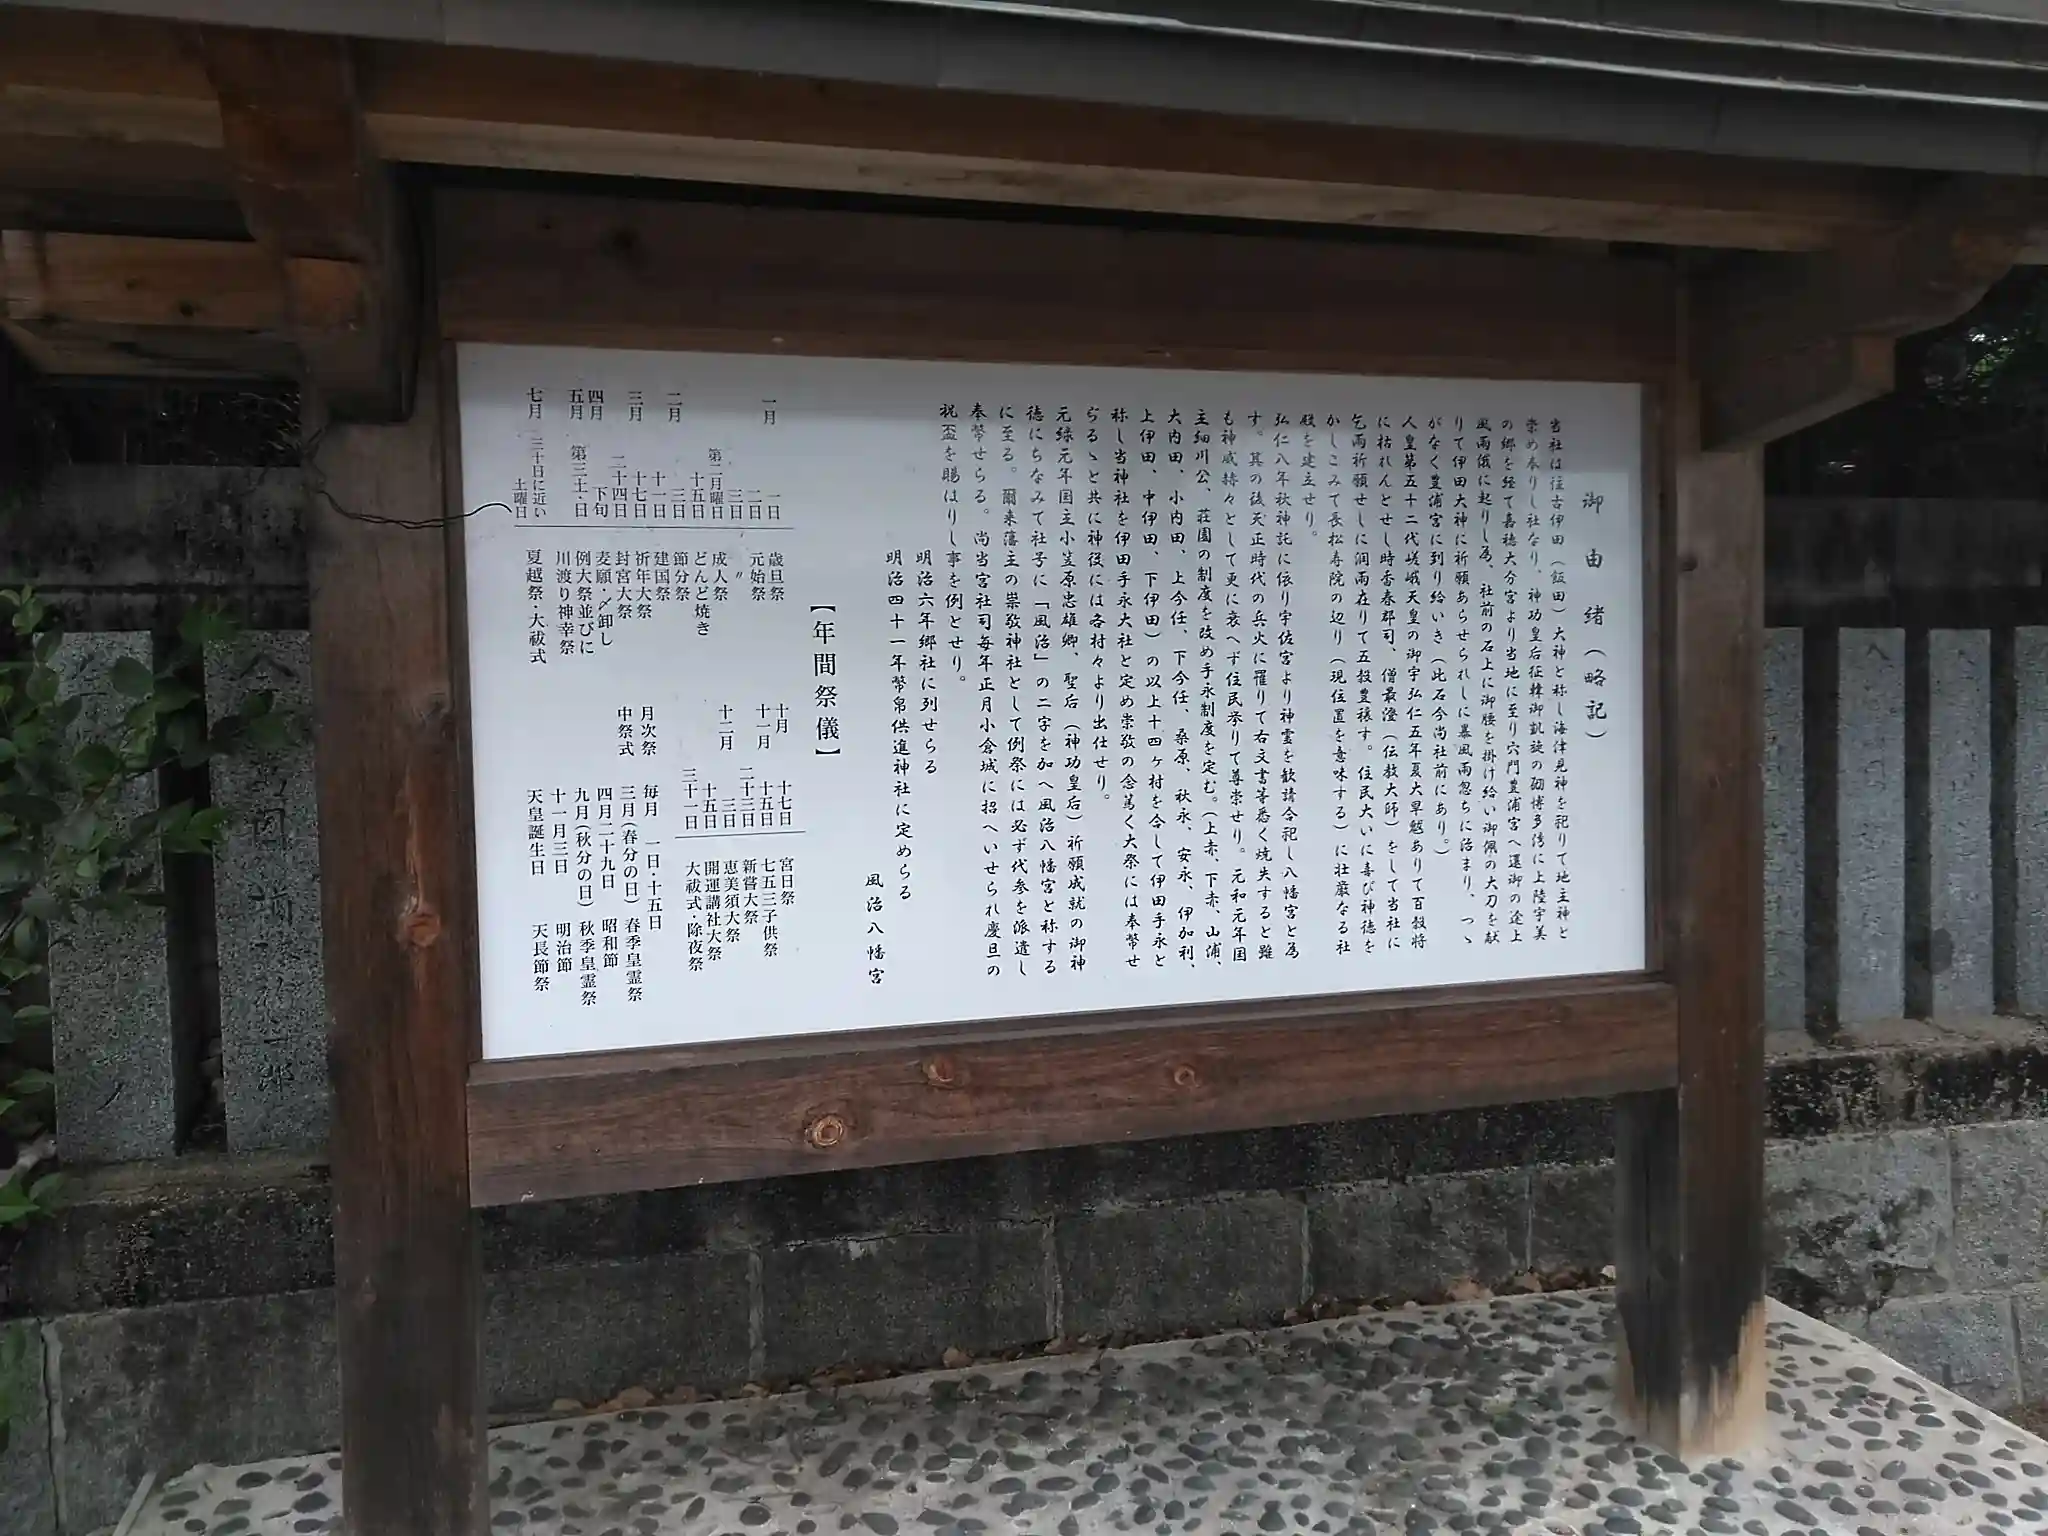 御由緒(略記)
当社は往古伊田(飯田)大神と称し海津見神を祀りて地主神と
崇め奉りし社なり。神功皇后征韓御凱旋の砌博多湾に上陸宇美
の郷を経て嘉穂大分宮より当地に至り穴門豊浦宮へ還御の途上
風雨俄に起りし為、社前の石上に御腰を掛け給い御佩の大刀を献
りて伊田大神に祈願あらせられしに暴風雨忽ちに治まり、つゝ
がなく豊浦宮に到り給いき(此石今尚社前にあり。)
人皇第五十二代嵯峨天皇の御宇弘仁五年夏大旱魃ありて百穀将
に枯れんとせし時香春郡司、僧最澄(伝教大師)をして当社に
乞雨祈願せしに潤雨在りて五穀豊穣す。住民大いに喜び神徳を
かしこみて長松寿院の辺り(現位置を意味する)に壮厳なる社
殿を建立せり。
弘仁八年秋神託に依り宇佐宮より神霊を歓請合祀し八幡宮と為
す。其の後天正時代の兵火に罹りて右文書等悉く焼失すると雖
も神威赫々として更に衰へず住民挙りて尊崇せり。元和元年国
主細川公、荘園の制度を改め手永制度を定む。(上赤、下赤、山浦、
大内田、小内田、上今任、下今任、桑原、秋永、安永、伊加利、
上伊田、中伊田、下伊田)の以上十四ヶ村を合して伊田手永と
称し当神社を伊田手永大社と定め崇敬の念篤く大祭には奉幣せ
らるゝと共に神役には各村々より出仕せり。
元緑元年国主小笠原忠雄卿、聖后(神功皇后)祈願成就の御神
徳にちなみて社号に「風治」の二字を加へ風治八幡宮と称する
に至る。爾来藩主の崇敬神社として例祭には必ず代参を派遣し
奉幣せらる。尚当宮社司毎年正月小倉城に招へいせられ慶旦の
祝盃を賜はりし事を例とせり。
明治六年郷社に列せらる
明治四十一年幣帛供進神社に定めらる
風治八幡宮
【年間祭儀】
一月 一日 歳旦祭
二日 元始祭
三日 〃
第二月曜日 成人祭
十五日 どんど焼き
二月 三日 節分祭
十一日 建国祭
三月 十七日 祈年大祭
二十四日 封宮大祭
四月 下旬 麦願・〆卸し
五月 第三土・日 例大祭並びに
川渡り神幸祭
七月 三十日に近い
土曜日 夏越祭・大祓式
十月 十七日 宮日祭
十一月 十五日 七五三子供祭
二十三日 新嘗大祭
十二月 三日 恵美須大祭
十五日 開運講社大祭
三十一日 大祓式・除夜祭
月次祭 毎月 一日・十五日
中祭式 三月(春分の日) 春季皇霊祭
四月二十九日 昭和節
九月(秋分の日) 秋季皇霊祭
十一月三日 明治節
天皇誕生日 天長節祭